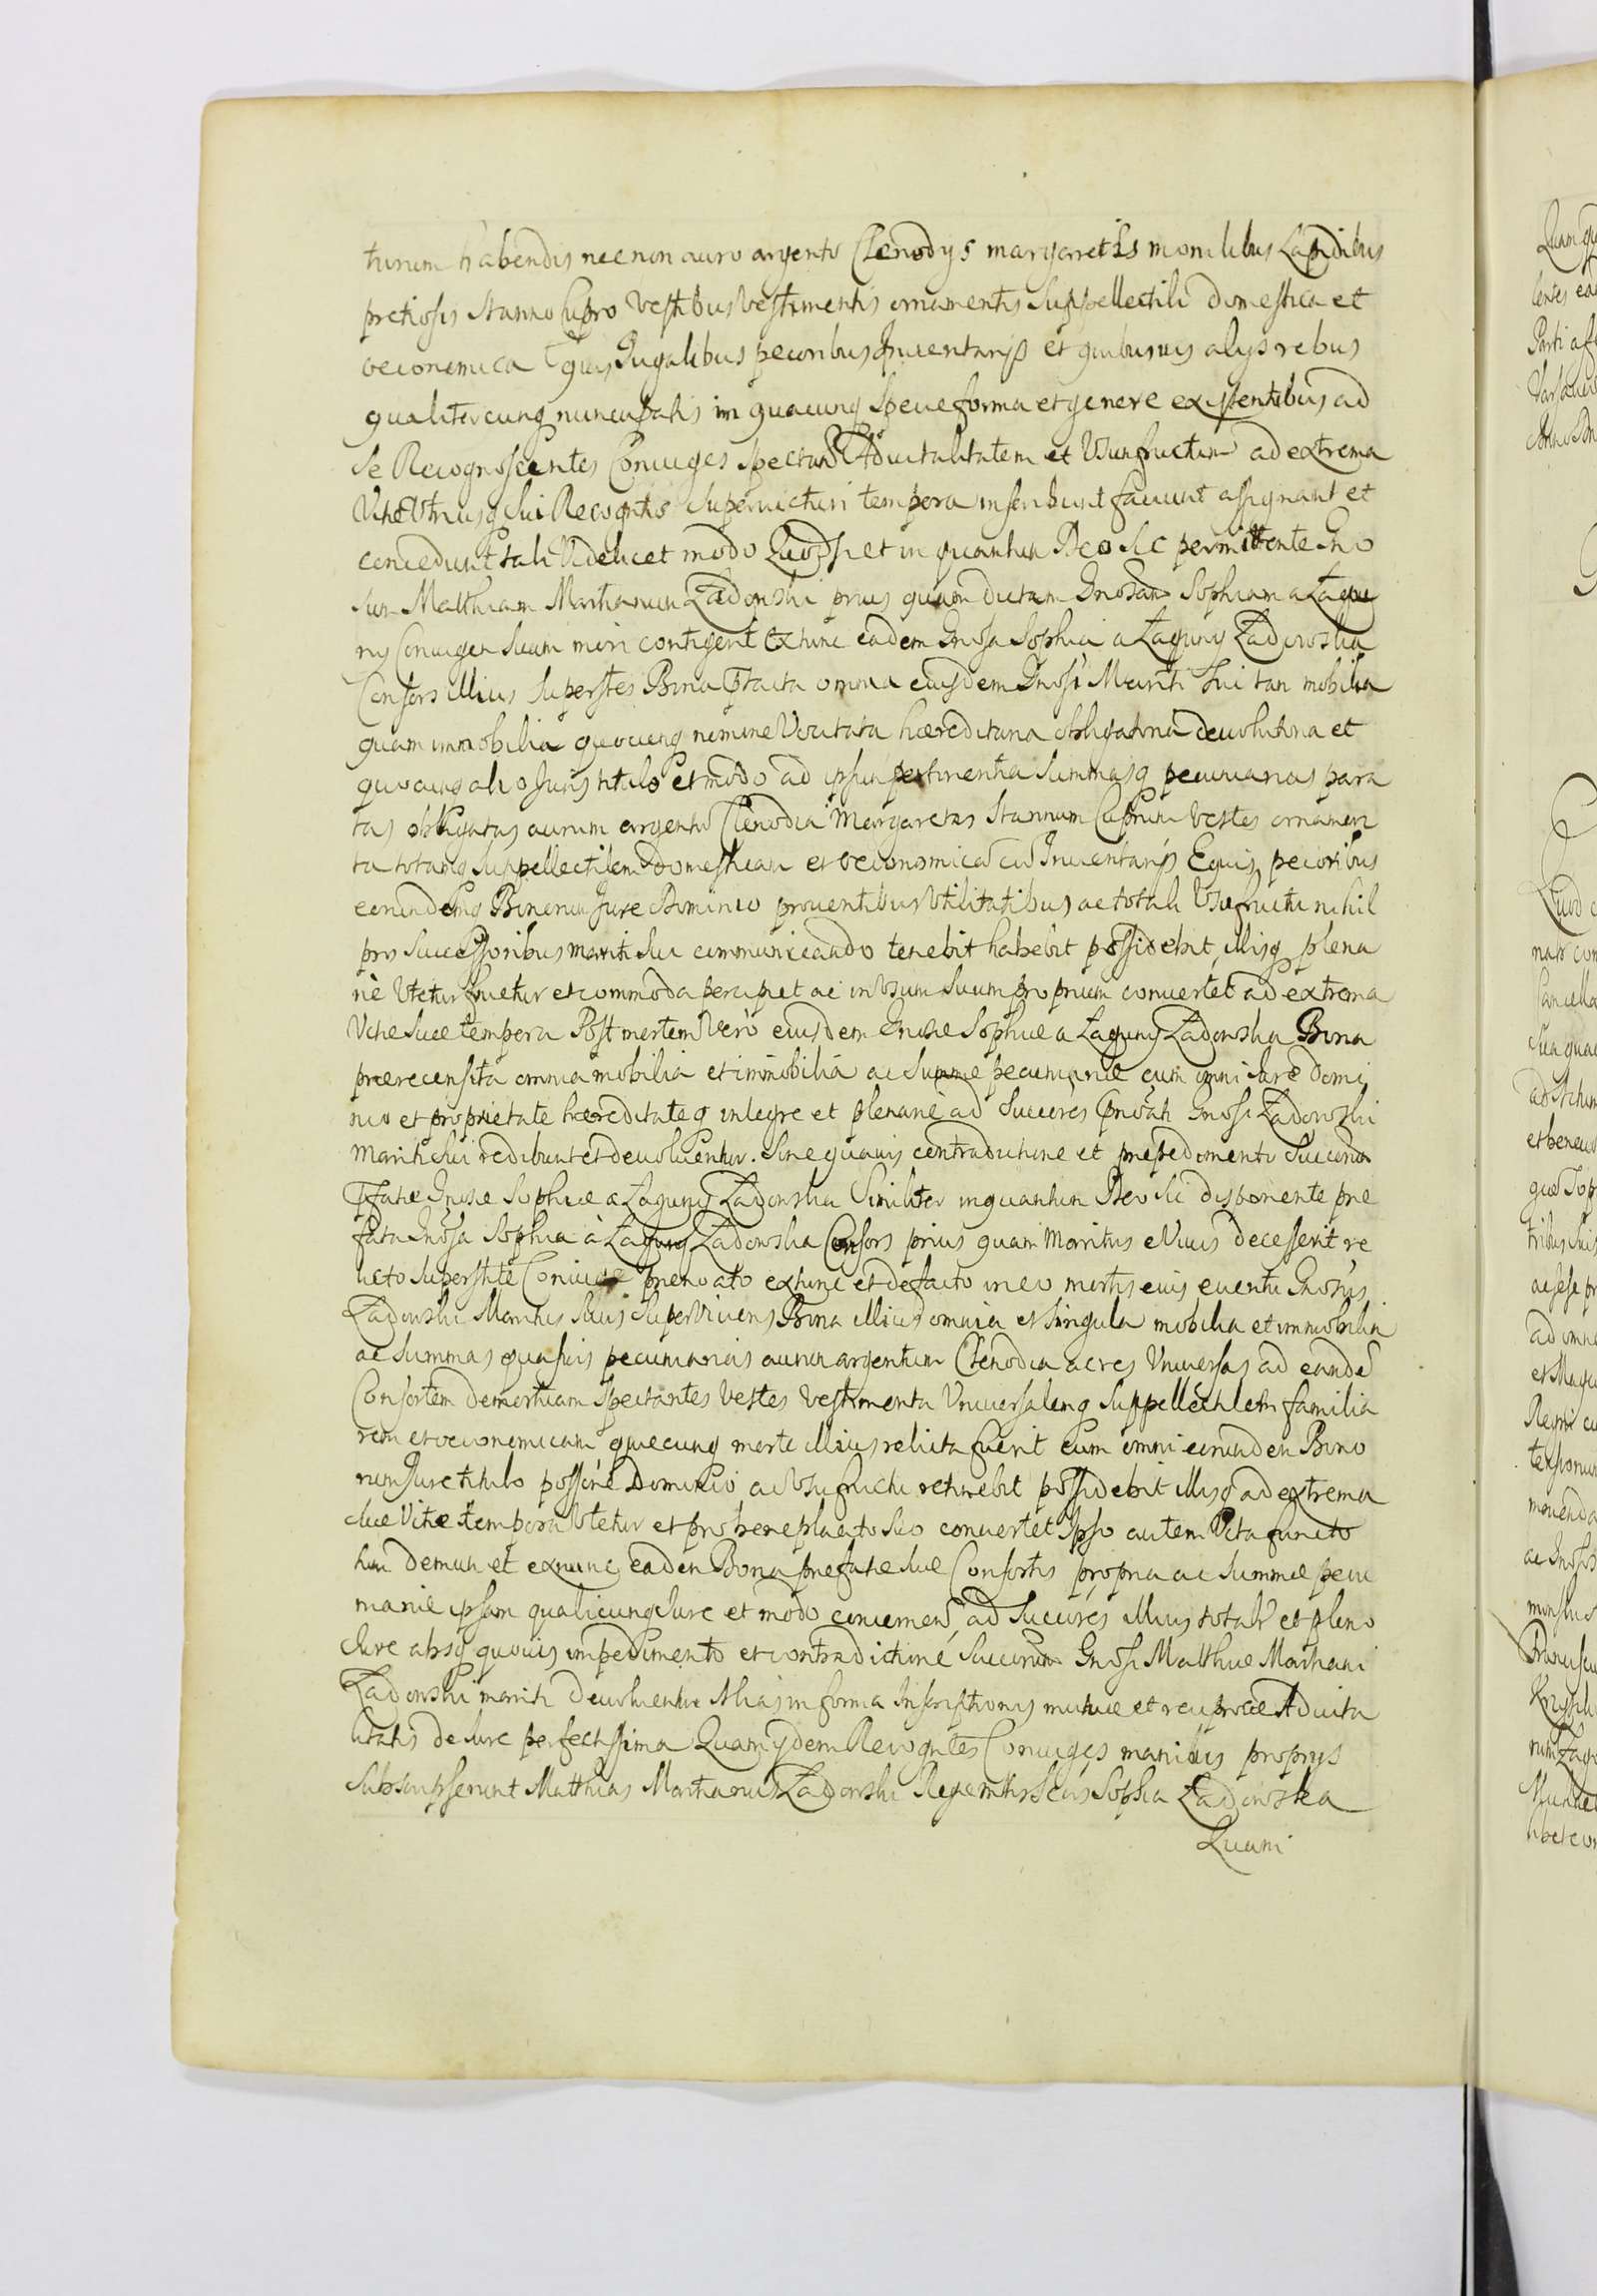 turum habendis nec non auro argento Clenodys margaretis monilibus Lapidibus
pretiosis stanno Cupro Vestibus Vestimentis ornamentis Suppellectili domestica et
oeconomica Equis Iugalibus pecoribus Inventarijs et quibusuis alijs rebus
qualitercunq nuncupatis in quacunq Specie forma et genere existentibus ad
se Recognoscentes Coniuges Spectan Aduitalitatem et Vsumfructum ad extrema
Vitae Vtriusq Sui Recogntis Superuicturi tempora inscribunt faciunt assignant et
concedunt tali Videlicet modo Quod si et in quantum Deo sic permittente Gno
sum Matthiam Martianum Zadowski prius quam dictam Gnosam Sophiam a Zagu
ny Coniugem Suam mori contigerit Extunc eadem Gnosa Sophia a Zaguny Zadowska
Consors illius Superstes Bona omnia eiusdem Gnosi Mariti Sui tam mobilia
quam immobilia quocunq nomine Vocitata haereditaria obligatoria deuolutoria et
quocunq alio Juris titulo et modo ad ipsum pertinentia Summasq pecuniarias para
tas obligatas aurum argentum Clenodia Margaretas Stannum Cuprum Vestes ornamen
ta totamq Suppellectilem Domesticam et oeconomicam cum Inuentarijs Equis pecoribus
eorundemq Bonorum Jure Dominio prouentibus Vtilitatibus ac totali Vsufructu nihil
pro Successoribus mariti Sui communicando tenebit habebit possidebit illisq plena
rie Vtetur fruetur et commoda percipiet ac in Vsum Suum proprium conuertet ad extrema
Vitae Suae tempora Post mortem Vero eiusdem Gnosae Sophiae a Zaguny Zadowska Bona
praerecensita omnia mobilia et immobilia ac Summae pecuniariae cum omni Jure domi
nio et proprietate haereditateq integre et plenarie ad Succores Gnosi Zadowski
Mariti Sui redibunt et deuoluentur. Sine quauis contradictione et impedimento Succorum
Gnosae Sophiae a Zaguny Zadowska Similiter inquantum Deo sic disponente prae
fata Gnosa Sophia à Zaguny Zadowska Consors prius quam Maritus e Viuis decesserit re
licto Superstite Coniuge prenoato extunc et de facto in eo mortis eius euentu Gnosus
Zadowski Maritus Suus Superviuens Bona illius omnia et Singula mobilia et immobilia
ac Summas quasuis pecuniarias aurum argentum Clenodia ac res Vniuersas ad eandem
Consortem demortuam Spectantes Vestes Vestimenta Vniuersalemq Suppellectilem familia
rem et oeconomicam quaecunq morte illius relicta fuerit cum omni eorundem Bono
rum Jure titulo possne Dominio ac Vsufructu retinebit possidebit illisq ad extrema
Suae Vitae tempora Vtetur et pro beneplacito Suo conuertet Ipso autem Vita functo
tum demum et exnunc eadem Bona praefatae Suae Consortis propria ac Summae pecu
niariae ipsam qualicunq Jure et modo concernen ad Succores illius total et pleno
Jure absq quouis impedimento et contradictione Succorum Gnosi Matthiae Martiani
Zadowski mariti deuoluentur Alias in forma Inscriptionis mutuae et reciprocae Aduita
litatis de Jure perfectissima Quam ijdem Recogntes Coniuges manibus proprys
Subscripserunt Matthias Martianus Zadowski Sophia Zadowska
Quam